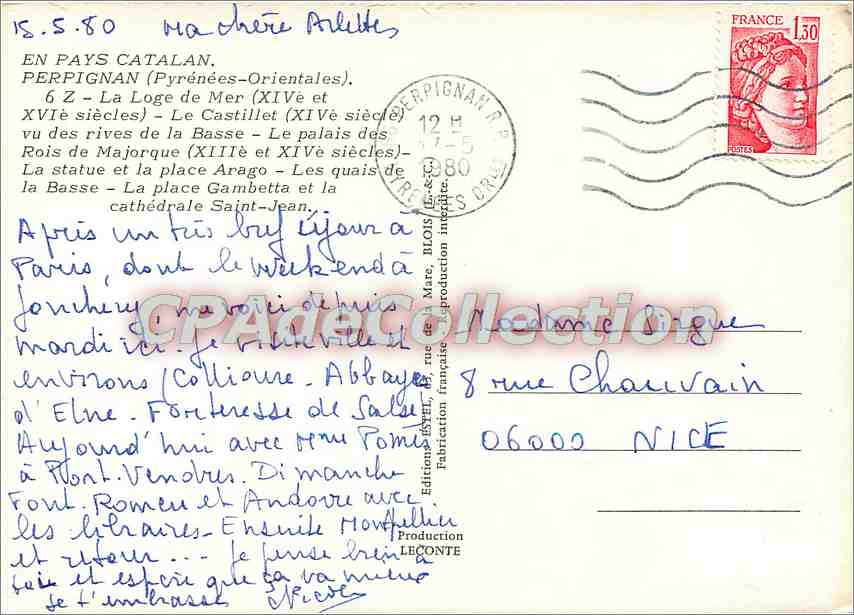 15.5.80 Ma chère Arlette
EN PAYS CATALAN.
PERPIGNAN (Pyrénées-Orientales).
6 Z - La Loge de Mer (XIVè et
XVIè siècles) - Le Castillet (XIVè siècle)
vu des rives de la Basse - Le palais des
Rois de Majorque (XIIIè et XIVè siècles)-
La statue et la place Arago - Les quais de
la Basse - La place Gambetta et la
cathédrale Saint-Jean.
Après un très bref séjour à
Paris, dont le weekend à
Jonchery, me voici depuis
mardi ici. Je visite ville et
environs (Collioure. Abbaye
d'Elne. Forteresse de Salses)
Aujourd'hui avec Mme Pomès
à Port-Vendres. Dimanche
Font-Romeu et Andorre avec
les libraires. Ensuite Montpellier
et retour... Je pense bien à
toi et espère que ça va mieux
Je t'embrasse Nicole
FRANCE 1,30
POSTES
PERPIGNAN R.P.
12 H
17-5
1980
PYRENEES ORles
Editions ESTEL, rue de la Mare, BLOIS (L.-&-C.)
Fabrication française - Reproduction interdite.
Production
LECONTE
CPAdeCollection
Madame Sirgue
8 rue Chauvain
06000 NICE